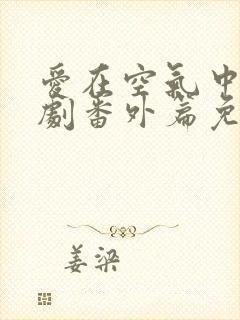 愛在空氣中
劇番外篇免
姜梁